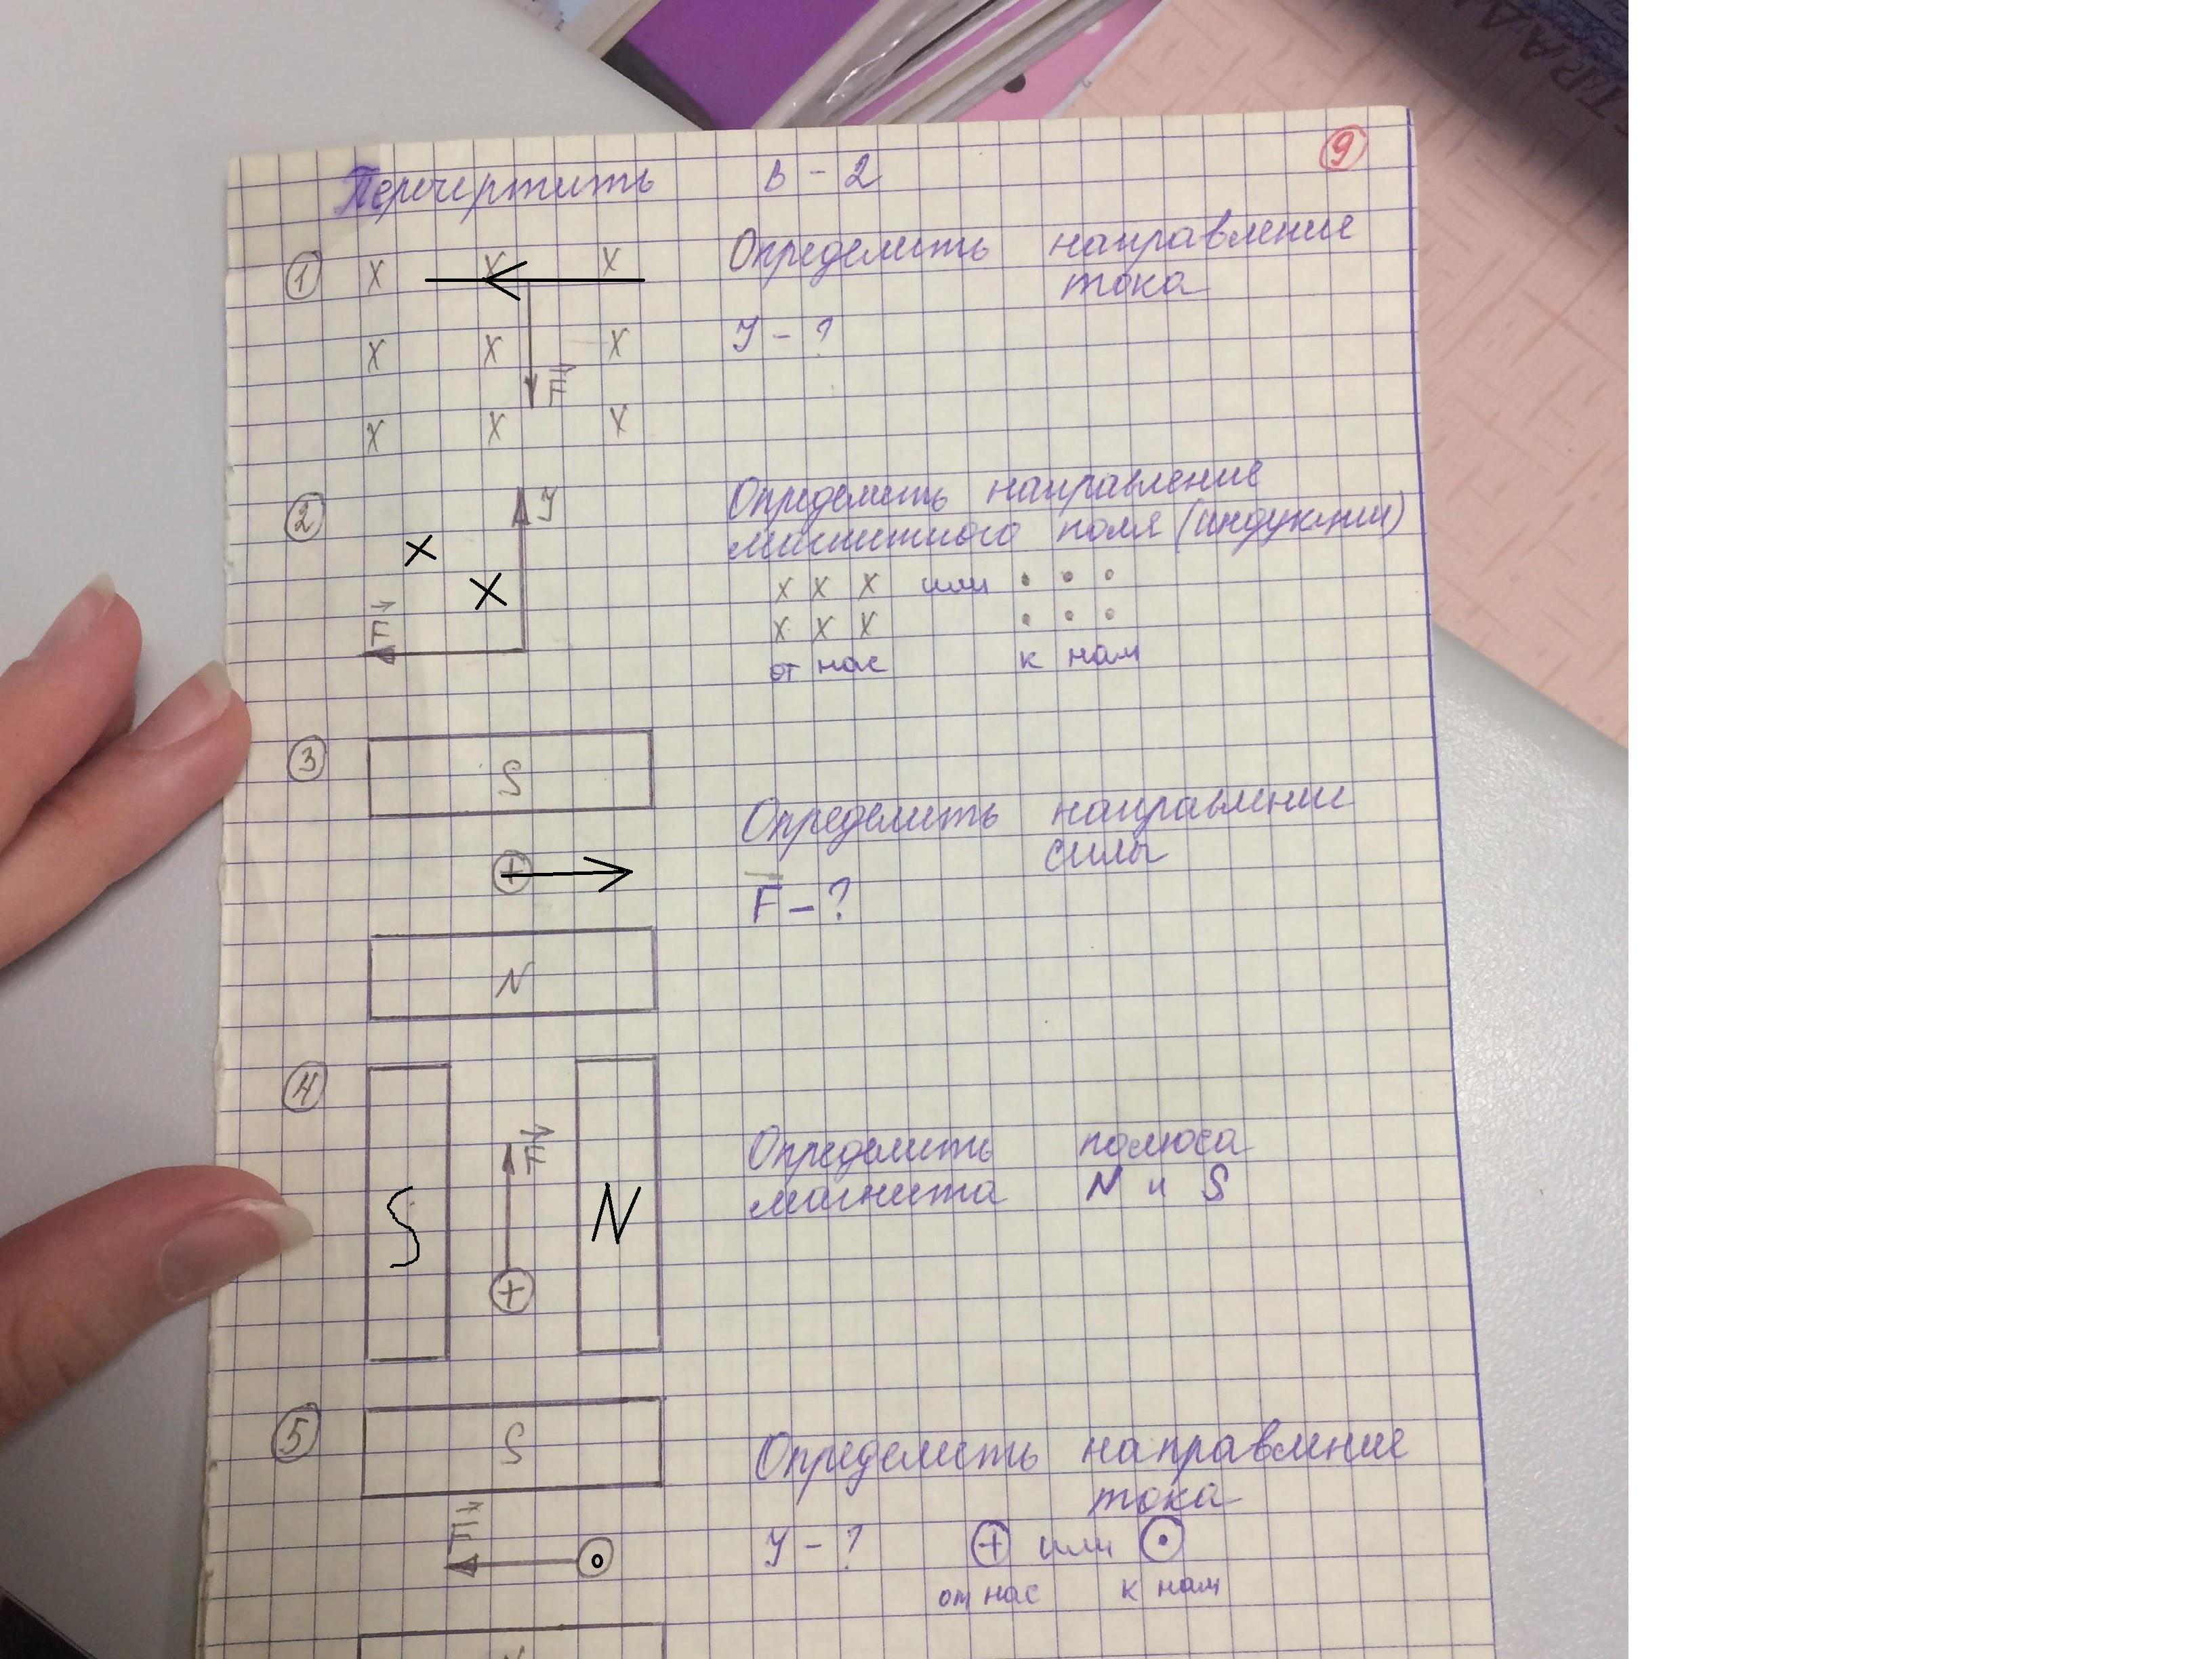 Перечертить В - 2 9
1 X X X Определить направление
тока
X X X У - ?
F
X X X
2 У Определить направление
магнитного поля (индукции)
X
X X X X или • • •
F X X X • • •
от нас к нам
3 S
Определить направление
силы
+ F - ?
N
4
F Определить полюса
S N магнита N и S
+
5 S Определить направление
тока
F У - ? + или •
от нас к нам